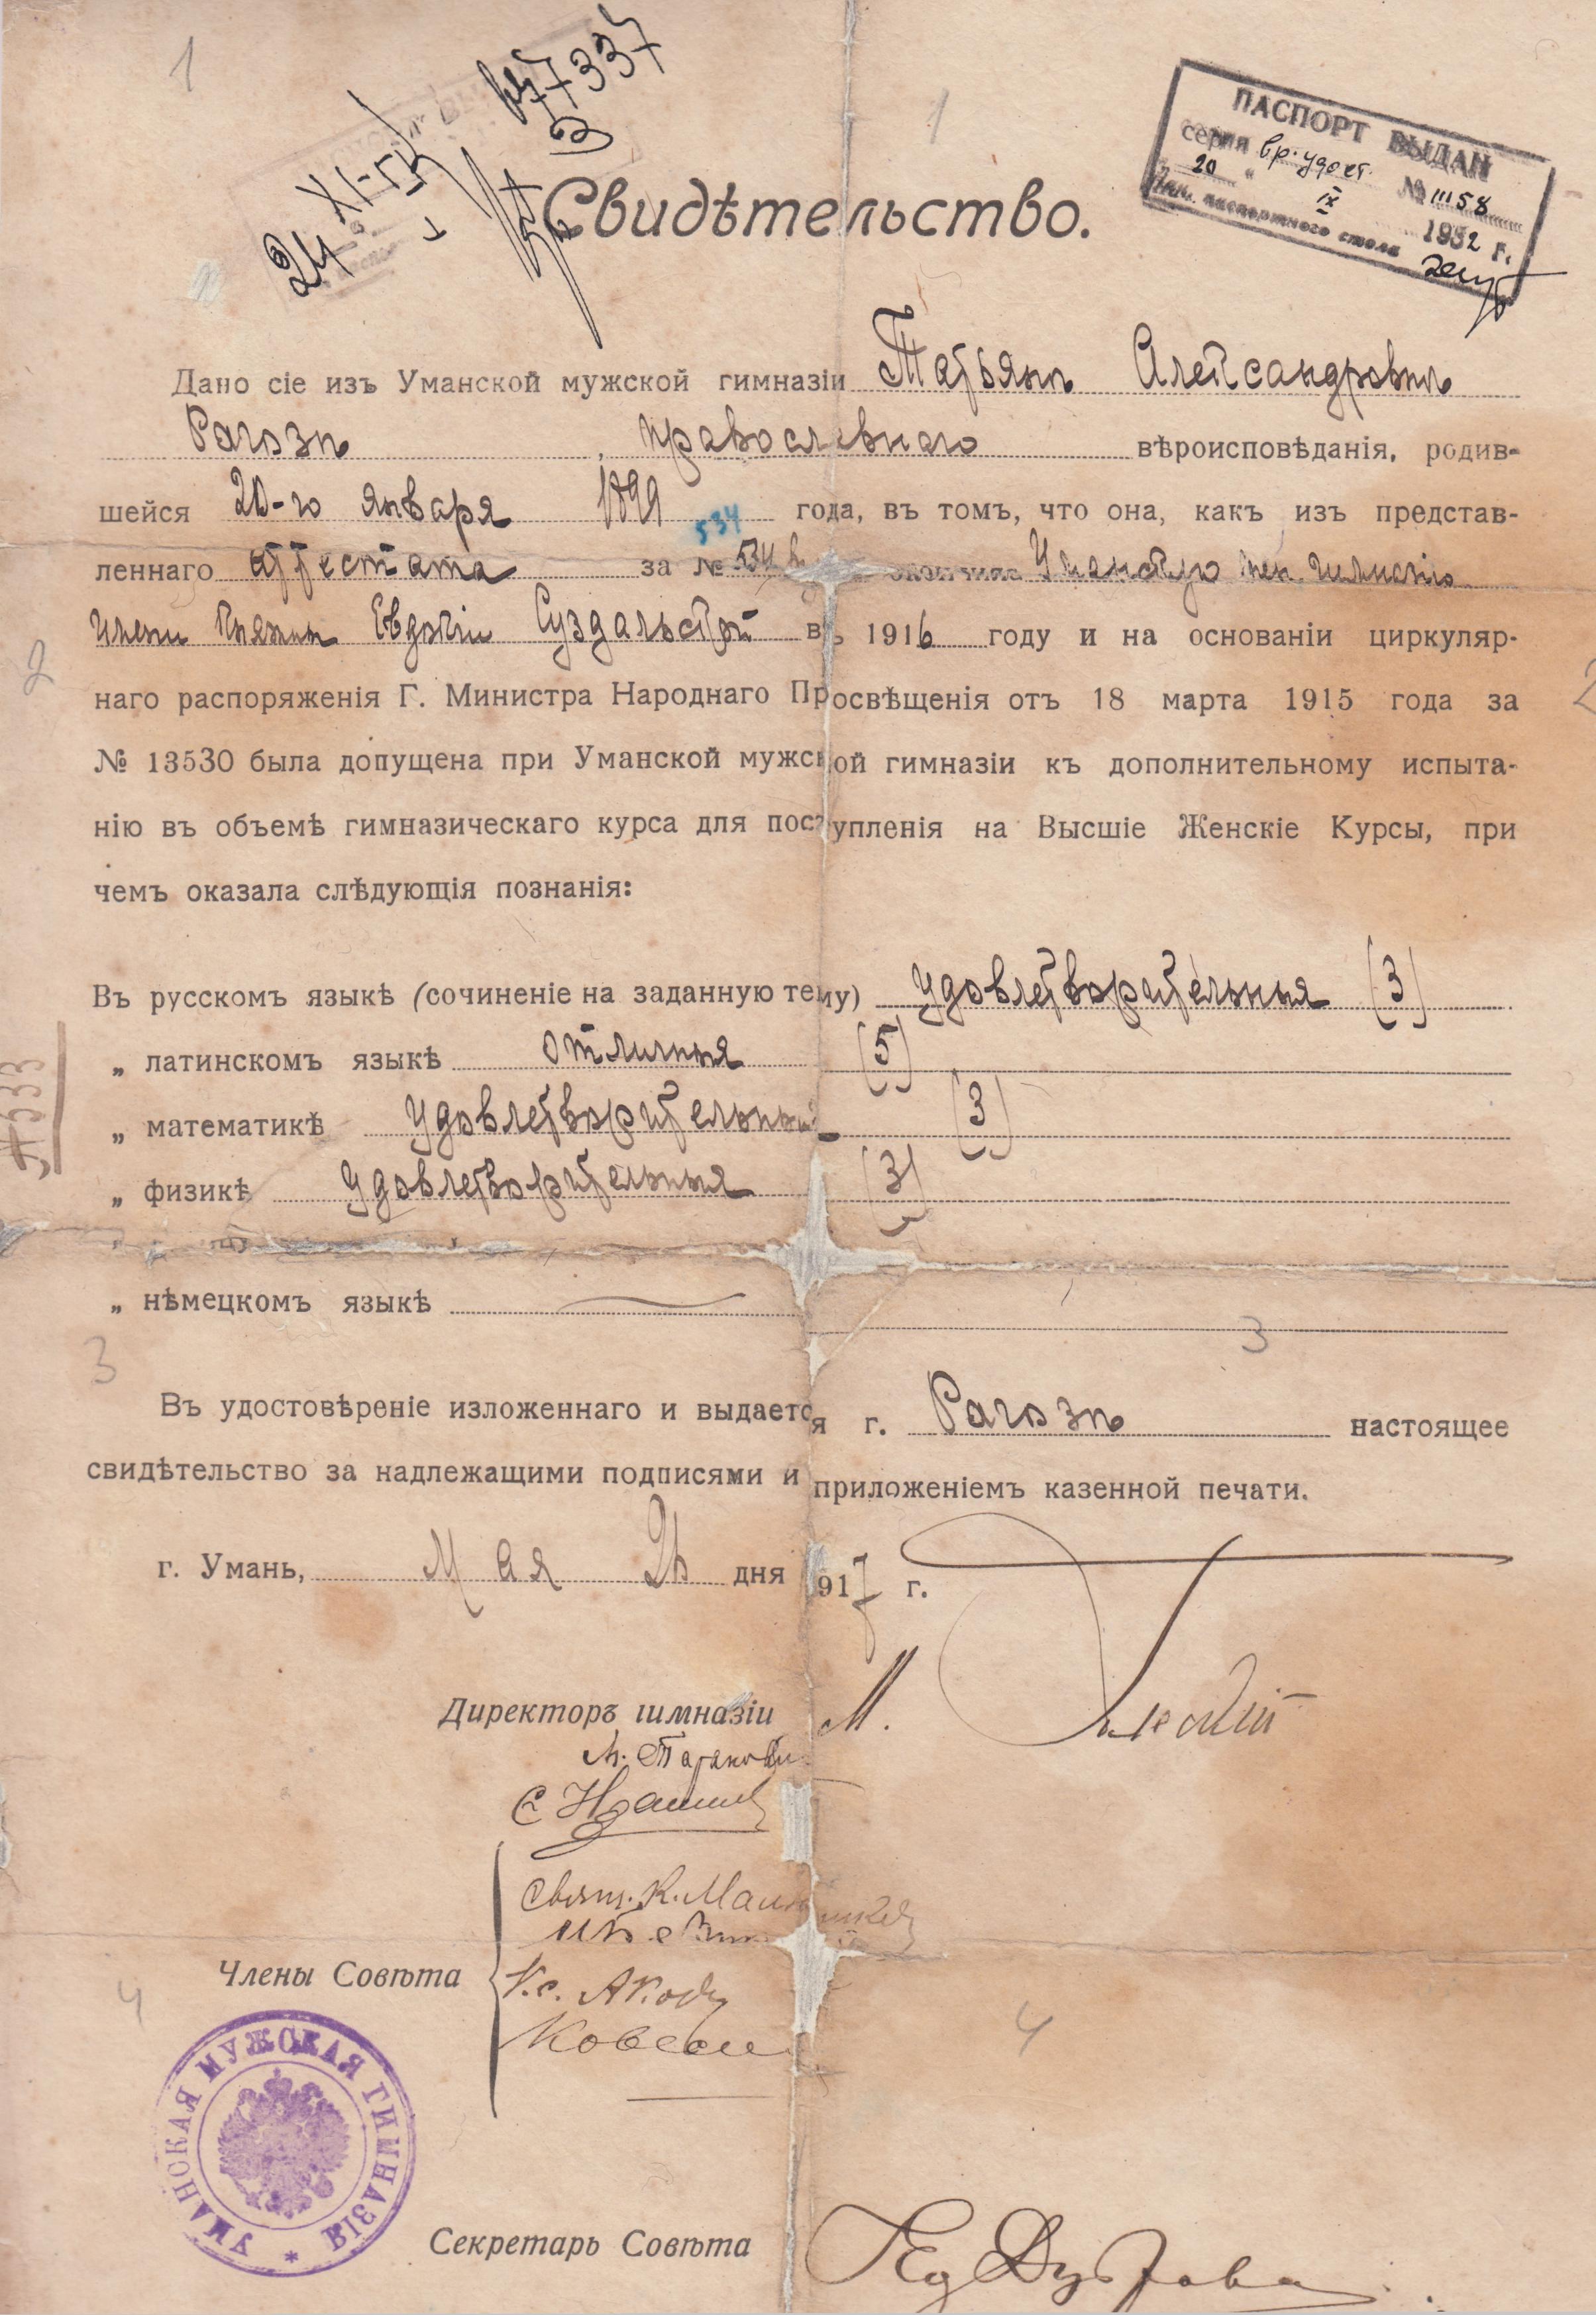 1
24 XI-
77337
1
ПАСПОРТ ВЫДАН
серия вр. удост. № 1158
20 " IX 1932 г.
Нач. паспортного стола
Свидѣтельство.
Дано сіе изъ Уманской мужской гимназіи Татьянѣ Александровнѣ
Рагозѣ, православнаго вѣроисповѣданія, родив-
шейся 20-го января 1899 года, въ томъ, что она, какъ изъ представ-
534
леннаго аттестата за № 534 окончила Уманскую жен. гимназію
имени Княжны Евдокіи Суздальской въ 1916 году и на основаніи циркуляр-
2
наго распоряженія Г. Министра Народнаго Просвѣщенія отъ 18 марта 1915 года за
2
№ 13530 была допущена при Уманской мужской гимназіи къ дополнительному испыта-
нію въ объемѣ гимназическаго курса для поступленія на Высшіе Женскіе Курсы, при
чемъ оказала слѣдующія познанія:
Въ русскомъ языкѣ (сочиненіе на заданную тему) удовлетворительныя (3)
„ латинскомъ языкѣ отличныя (5)
„ математикѣ удовлетворительныя (3)
„ физикѣ удовлетворительныя (3)
№ 533
„ нѣмецкомъ языкѣ
3
3
Въ удостовѣреніе изложеннаго и выдается г. Рагозѣ настоящее
свидѣтельство за надлежащими подписями и приложеніемъ казенной печати.
г. Умань, Мая 26 дня 1917 г.
Директоръ гимназіи М.
Свящ. К.
Члены Совѣта
4
4
УМАНСКАЯ МУЖСКАЯ ГИМНАЗІЯ *
Секретарь Совѣта